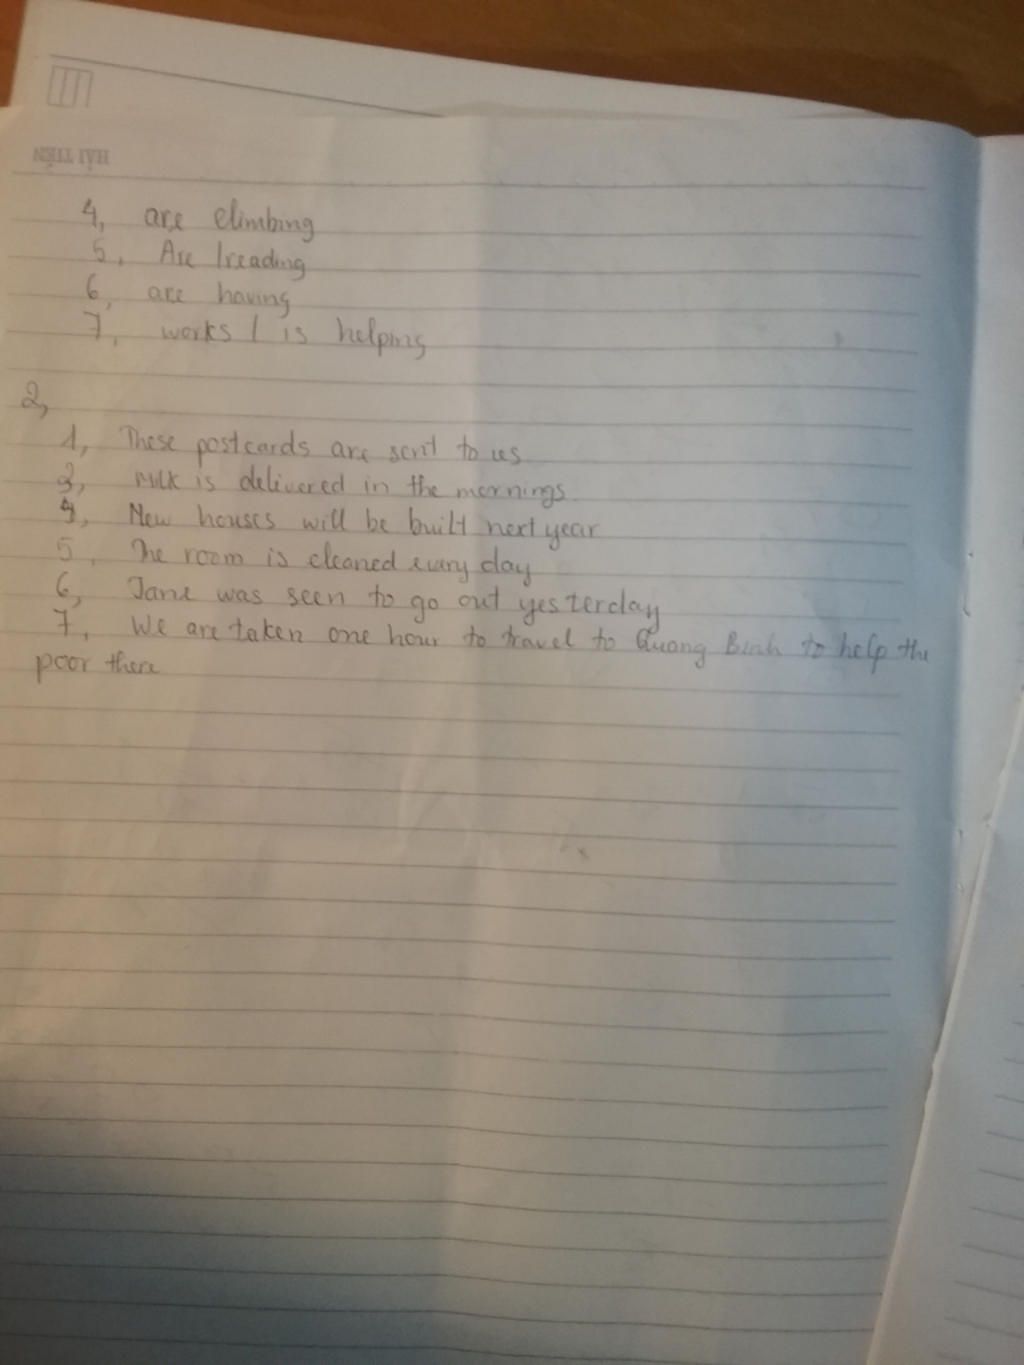 HẢI TIẾN
4, are climbing
5, Are / reading
6, are having
7, works / is helping
2,
1, These postcards are sent to us
3, Milk is delivered in the mornings
4, New houses will be built next year
5, The room is cleaned every day
6, Jane was seen to go out yesterday
7, We are taken one hour to travel to Quang Binh to help the
poor there